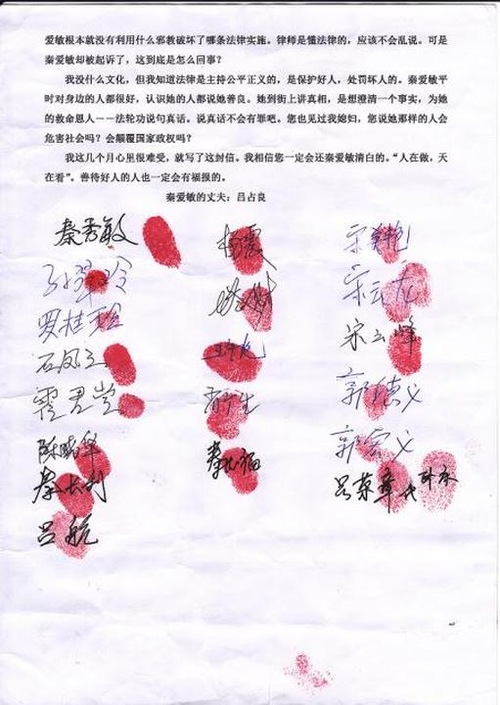 爱敏根本就没有利用什么邪教破坏了哪条法律实施。律师是懂法律的，应该不会乱说。可是
秦爱敏却被起诉了，这到底是怎么回事？
我没什么文化，但我知道法律是主持公平正义的，是保护好人，处罚坏人的。秦爱敏平
时对身边的人都很好，认识她的人都说她善良。她到街上讲真相，是想澄清一个事实，为她
的救命恩人——法轮功说句真话。说真话不会有罪吧。您也见过我媳妇，您说她那样的人会
危害社会吗？会颠覆国家政权吗？
我这几个月心里很难受，就写了这封信。我相信您一定会还秦爱敏清白的。“人在做，天
在看”。善待好人的人也一定会有福报的。
秦爱敏的丈夫：吕占良
秦秀敏 杨震
宋云龙
罗桂玲
宋云峰
郭德义
陈晓华 郭宏义
秦长利
吕航